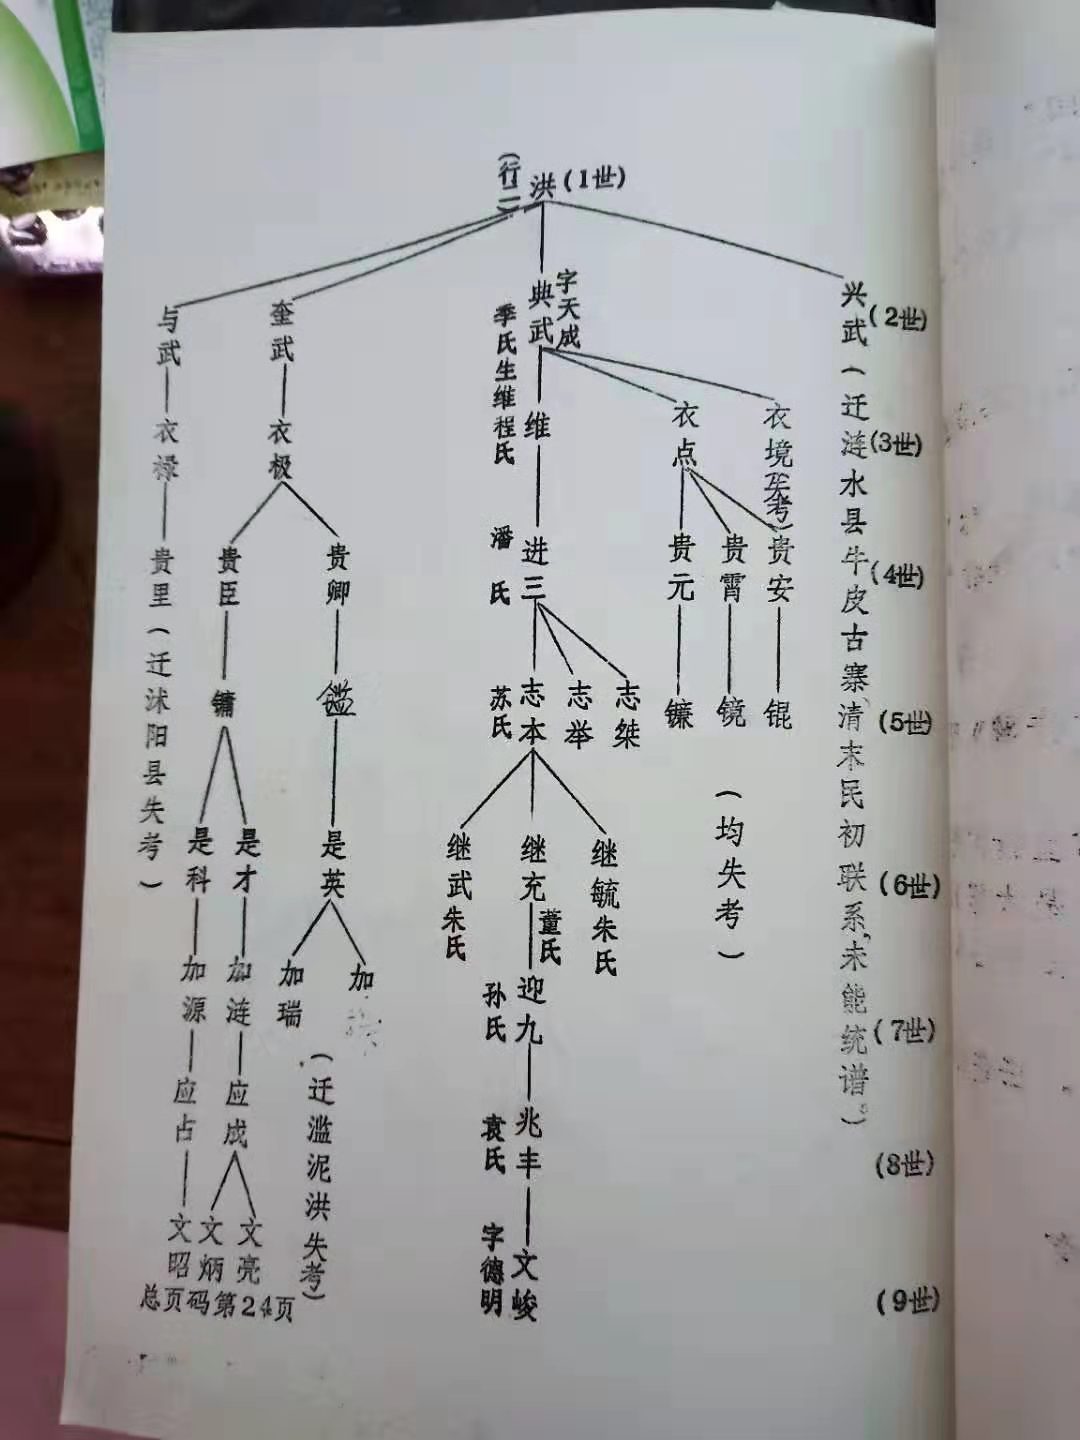 (行二)
洪(1世)
兴武(迁涟水县牛皮古寨、清末民初联系,未能统谱。)
(2世)
典武
字天成
季氏生维程氏
奎武
与武
(3世)
衣境(失考)
衣点
维
衣极
衣禄
(4世)
贵安
贵霄
贵元
进三
潘氏
贵卿
贵臣
贵里(迁沭阳县失考)
(5世)
锟
镜
镰
(均失考)
志桀
志举
志本
苏氏
镛
(6世)
继毓朱氏
继充
董氏
继武朱氏
是英
是才
是科
(7世)
迎九
孙氏
加
加瑞
(迁滥泥洪失考)
加涟
加源
(8世)
兆丰
袁氏
应成
应占
(9世)
文峻
字德明
文亮
文炳
文昭
总页码第24页